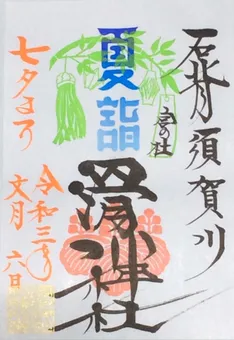 石背 須賀川
夏詣
神社
七夕まつり
令和三年
文月 六日